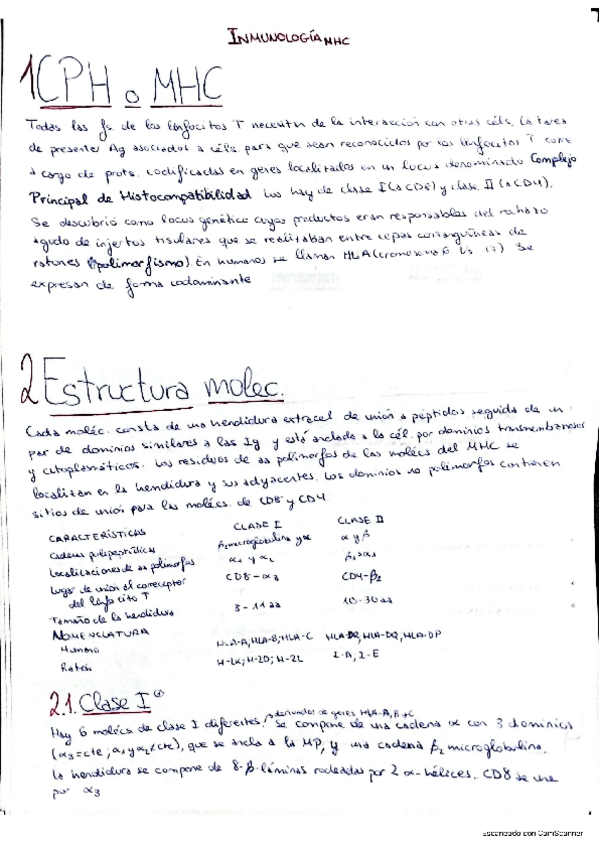 INMUNOLOGÍA MHC
1 CPH o MHC
Todas las fs. de los linfocitos T necesitan de la interacción con otras céls. La tarea
de presentar Ag asociados a céls. para que sean reconocidos por los linfocitos T corre
a cargo de prots. codificadas en genes localizados en un locus denominado Complejo
Principal de Histocompatibilidad. Los hay de clase I (a CD8) y clase II (a CD4).
Se descubrió como locus genético cuyos productos eran responsables del rechazo
agudo de injertos tisulares que se realizaban entre cepas consanguíneas de
ratones (polimorfismo). En humanos se llaman HLA (cromosoma 6 Vs 17) Se
expresan de forma codominante
2 Estructura molec.
Cada moléc. consta de una hendidura extracel. de unión a péptidos seguida de un
par de dominios similares a las Ig y está anclada a la cél. por dominios transmembranosos
y citoplasmáticos. Los residuos de aa polimorfos de las molécs del MHC se
localizan en la hendidura y sus adyacentes. Los dominios no polimorfos contienen
sitios de unión para las molécs. de CD8 y CD4
CARACTERÍSTICAS CLASE I CLASE II
Cadenas polipeptídicas β2 microglobulina y α α y β
Localizaciones de aa polimorfos α1 y α2 β1 α1
Lugar de unión al correceptor CD8-α3 CD4-β2
del linfocito T
Tamaño de la hendidura 3-11 aa 10-30 aa
NOMENCLATURA
Humano HLA-A, HLA-B, HLA-C HLA-DR, HLA-DQ, HLA-DP
Ratón H-2K; H-2D; H-2L I-A, I-E
2.1. Clase I
derivadas de genes HLA-A, B y C
Hay 6 molécs de clase I diferentes. Se compone de una cadena α con 3 dominios
(α3=cte; α1 y α2≠cte), que se ancla a la MP, y una cadena β2 microglobulina.
La hendidura se compone de 8-β-láminas rodeadas por 2 α-hélices. CD8 se une
por α3
Escaneado con CamScanner